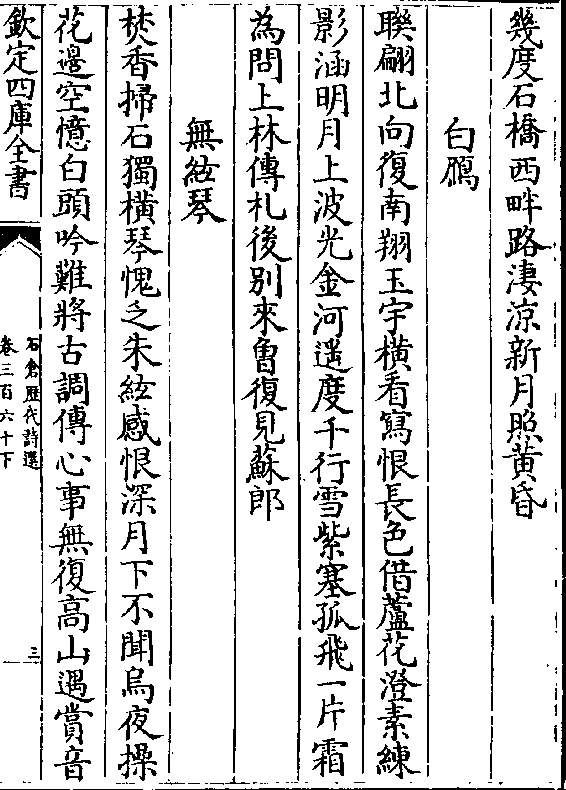 幾度石橋西畔路淒涼新月照黄昏
白鴈
聨翩北向復南翔玉宇横看寫恨長色借蘆花澄素練
影涵明月上波光金河遥度千行雪紫塞孤飛一片霜
為問上林傳札後别來曾復見蘇郎
無絃琴
焚香掃石獨横琴愧乏朱絃感恨深月下不聞烏夜操
花邉空憶白頭吟難將古調傳心事無復高山遇賞音
欽定四庫全書
石倉歴代詩選
卷三百六十下
三